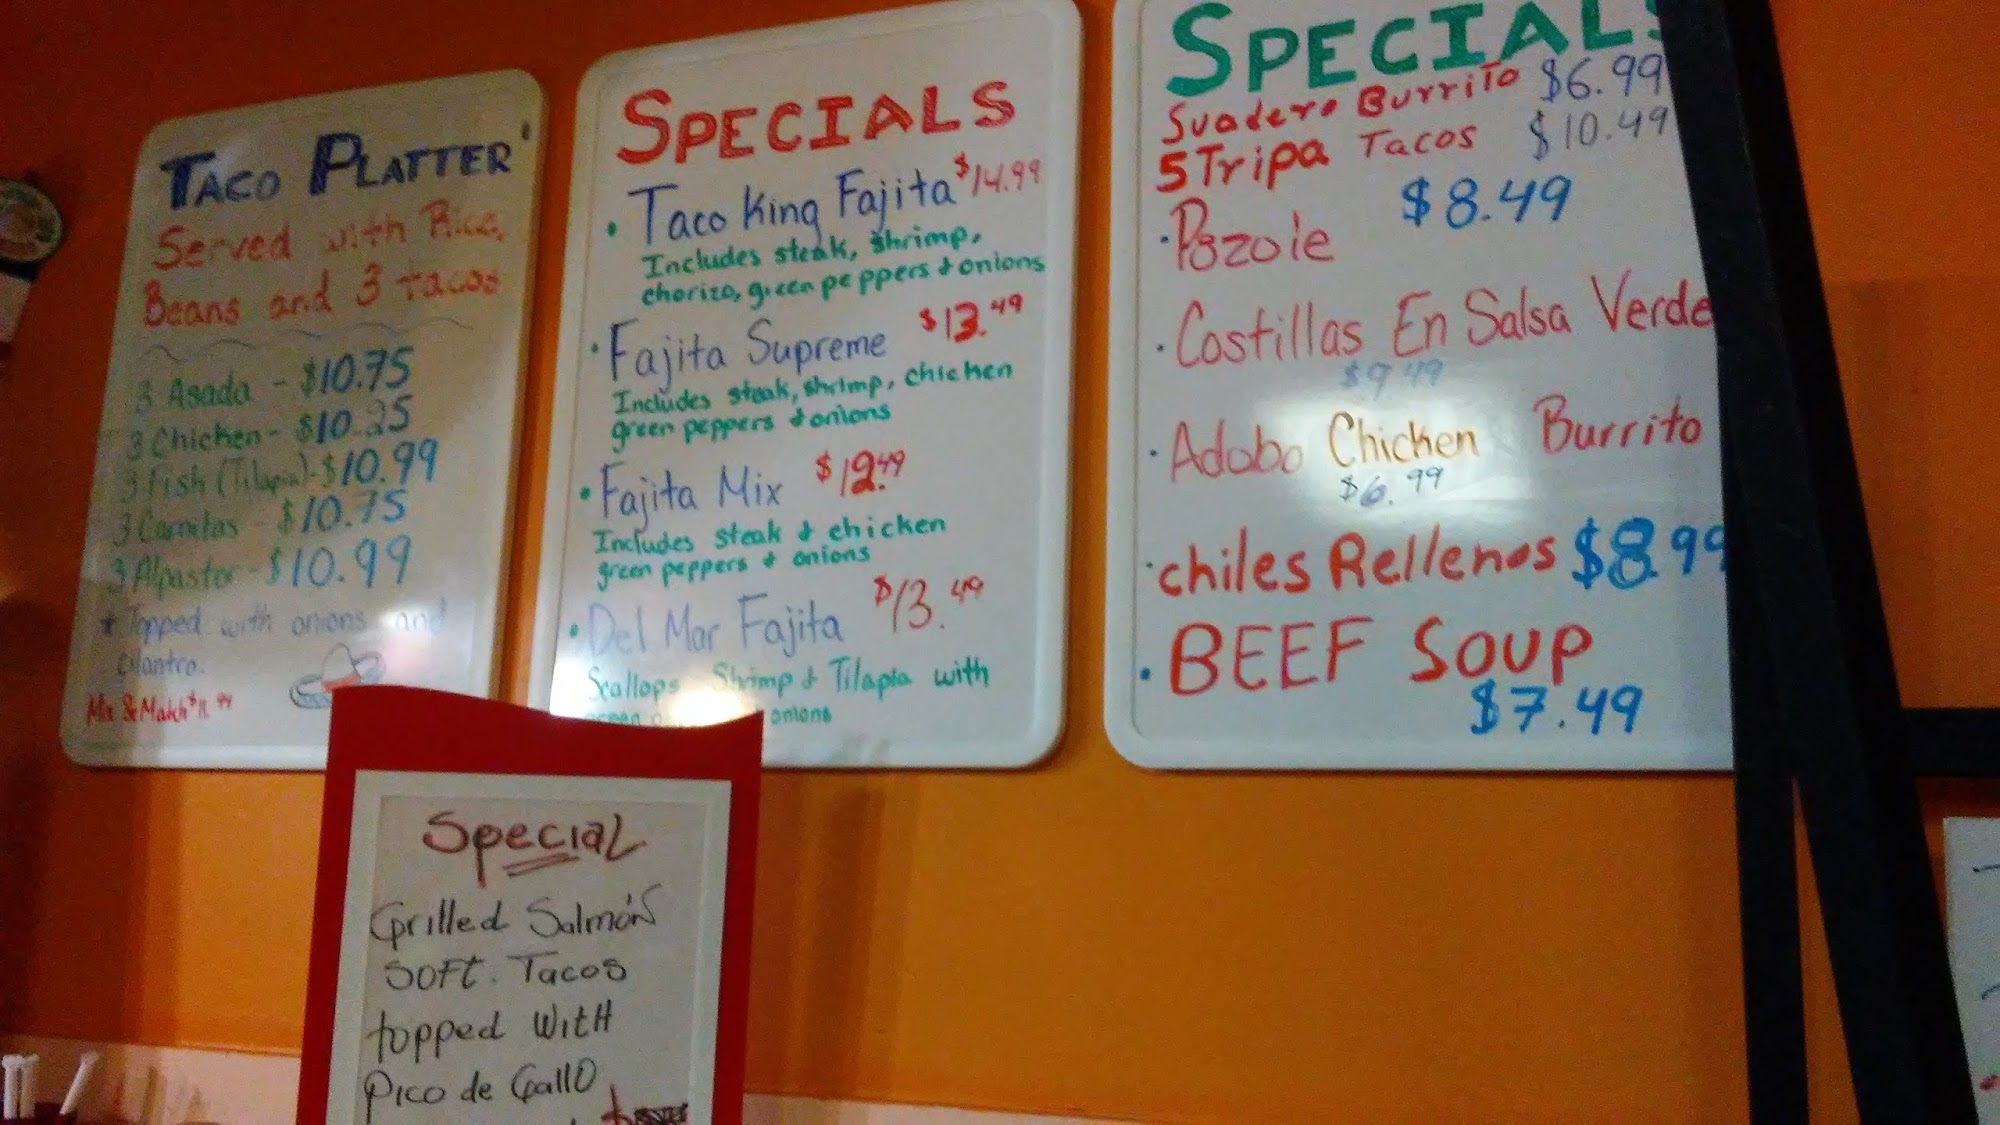 TACO PLATTER
Served with Rice,
Beans and 3 tacos
3 Asada - $10.75
3 Chicken - $10.25
3 Fish (Tilapia) - $10.99
3 Carnitas - $10.75
3 Alpastor - $10.99
* Topped with onions and
cilantro.
Mix & Match $11.99
SPECIALS
• Taco King Fajita $14.99
Includes steak, shrimp,
chorizo, green peppers & onions
• Fajita Supreme $13.49
Includes steak, shrimp, chicken
green peppers & onions
• Fajita Mix $12.49
Includes steak & chicken
green peppers & onions
• Del Mar Fajita $13.49
Scallops Shrimp & Tilapia with
green onions
SPECIALS
Suadero Burrito $6.99
5 Tripa Tacos $10.49
• Pozole $8.49
• Costillas En Salsa Verde
$9.49
• Adobo Chicken Burrito
$6.99
• chiles Rellenos $8.99
• BEEF SOUP
$7.49
Special
Grilled Salmón
SOFT. Tacos
topped WitH
Pico de GallO